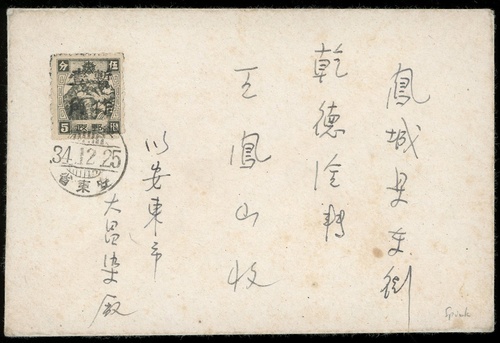 鳳城县东街
乾德洽轉
王鳳山收
以安東市
大昌染廠
分 伍
5
34.12.25
省東安
Spink